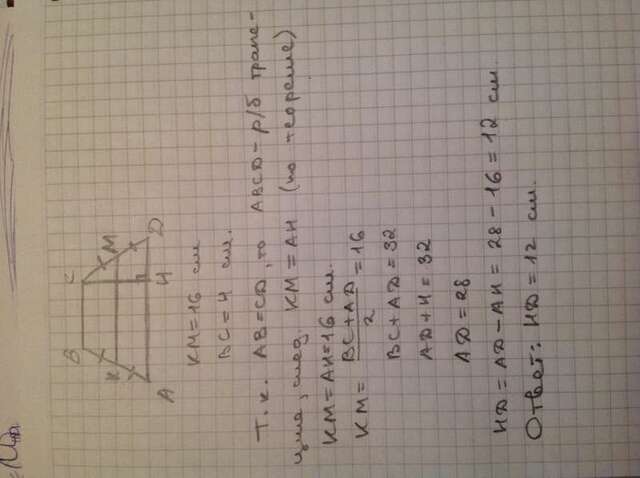 B C
K M
A H D
KM=16 см
BC=4 см.
Т.к. AB=CD, то ABCD- р/б трапе-
ция, след. KM=AH (по теореме)
KM=AH=16 см.
KM= BC+AD/2 =16
BC+AD=32
AD+4=32
AD=28
HD=AD-AH= 28-16=12 см.
Ответ: HD=12 см.